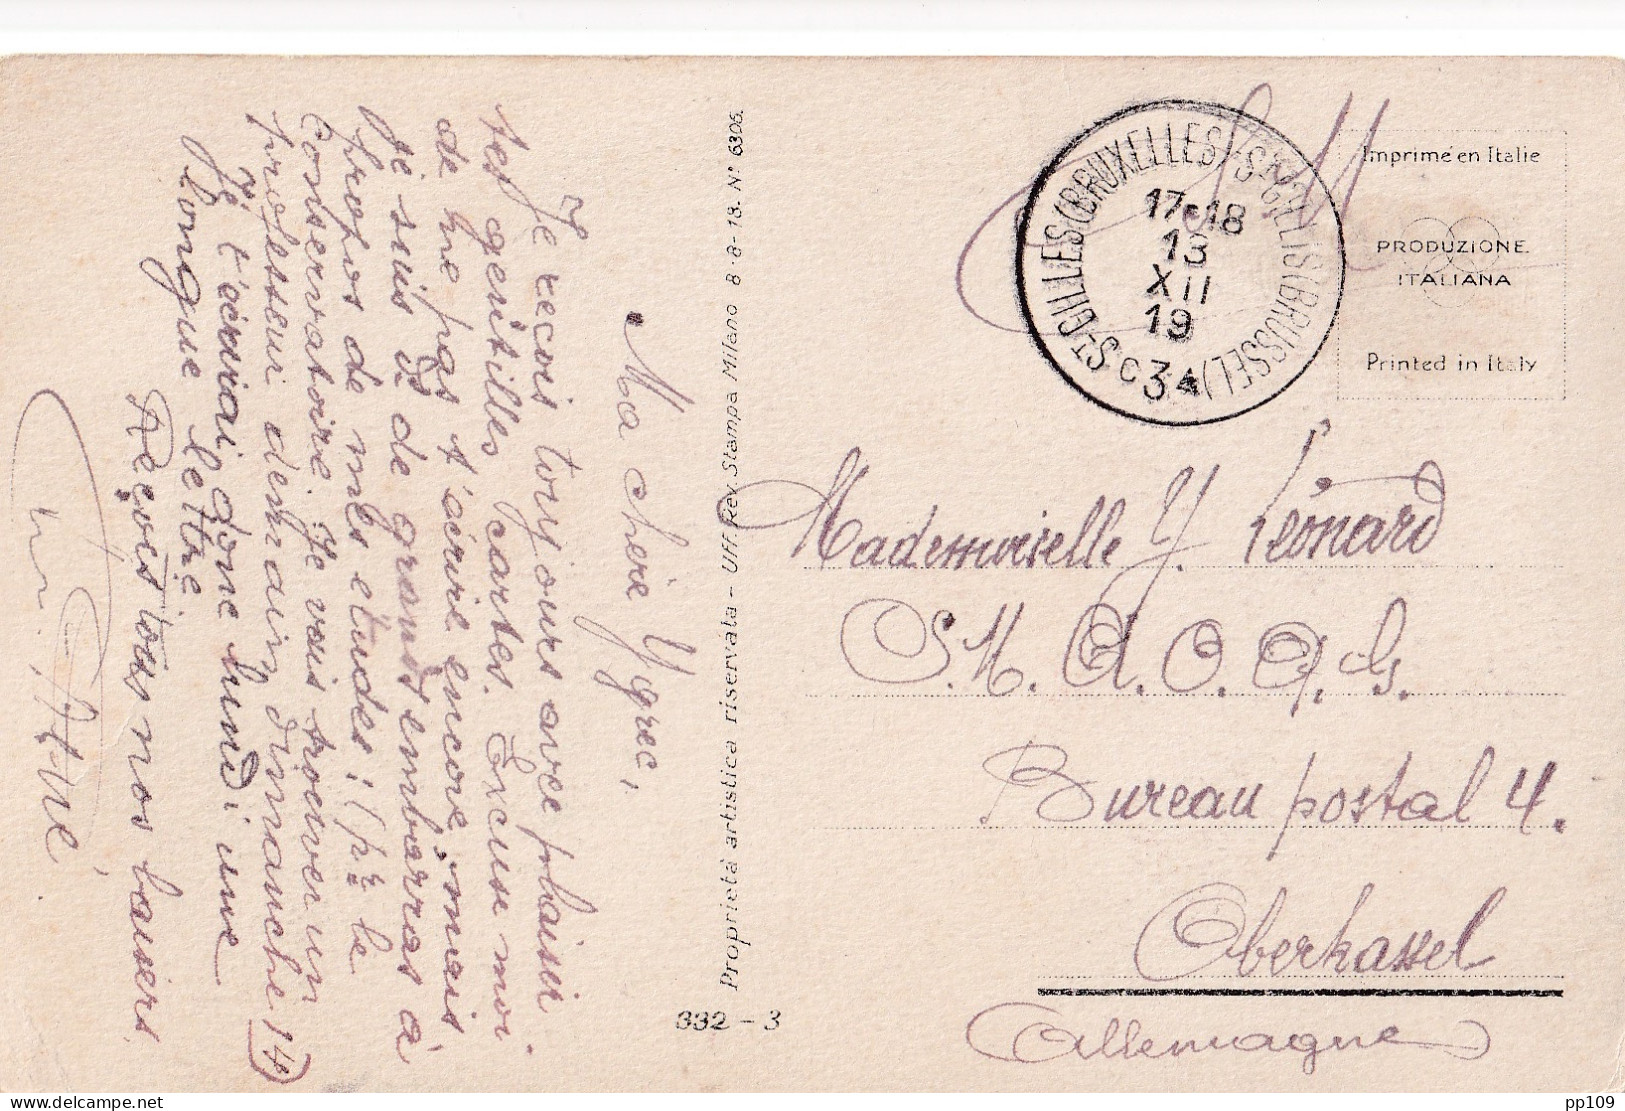 Ma chère Ygrec,
Je reçois toujours avec plaisir
tes gentilles cartes. Excuse moi
de ne pas t'écrire encore, mais
je suis dans de grands embarras à
propos de mes études! (Pr le
Conservatoire. Je vais trouver un
professeur demain dimanche 14)
Je t'écrirai donc lundi une
longue lettre.
Reçois tous nos baisers
Proprietà artistica riservata - Uff. Rev. Stampa Milano 8-8-18. N° 6306.
332 - 3
S. M.
ST GILLES (BRUXELLES) - ST GILLIS (BRUSSEL)
17-18
13
XII
19
C 3 4
Imprimé en Italie
PRODUZIONE
ITALIANA
Printed in Italy
Mademoiselle Y. Léonard
S. M. A. O. A. G.
Bureau postal 4.
Oberkassel
(Allemagne)
pp109